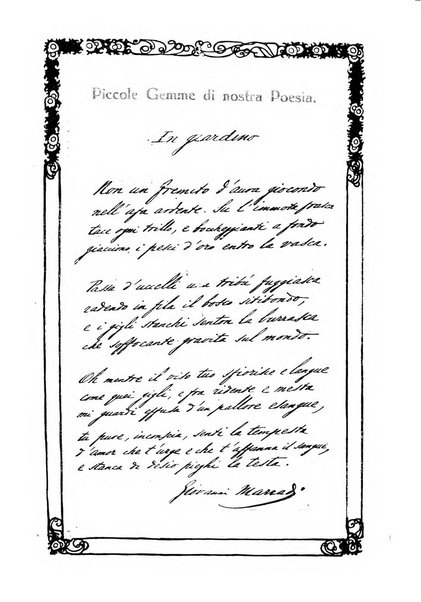 Piccole Gemme di nostra Poesia.
In giardino
Non un fremito d'aura giocondo
nell'afa ardente. Su l'immota frasca
tace ogni trillo, e boccheggianti a fondo
giacciono i pesci d'oro entro la vasca.
Passa d'uccelli una tribù fuggiasca
radendo in fila il bosco sitibondo,
e i gigli stanchi senton la burrasca
che suffocante gravita sul mondo.
Oh mentre il viso tuo sfiorisce e langue
come quei gigli, e fra ridente e mesta
mi guardi effusa d'un pallore esangue,
tu pure, inconscia, senti la tempesta
d'amor che t'urge e che t'affanna il sangue,
e stanca di desio pieghi la testa.
Giovanni Marradi